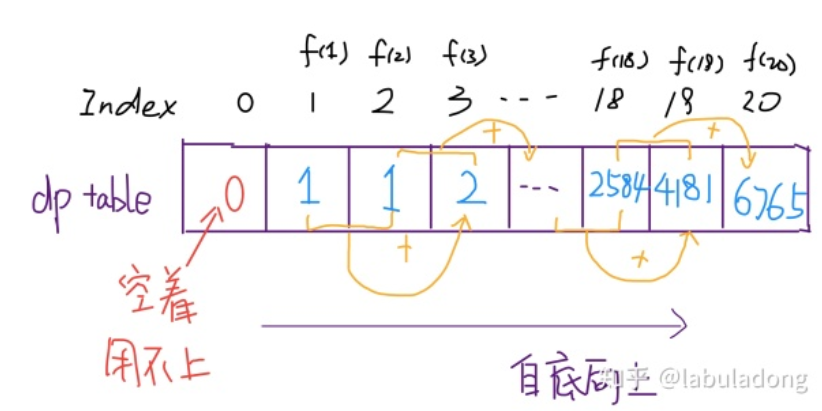 f(1) f(2) f(3) f(18) f(19) f(20)
Index 0 1 2 3 --- 18 19 20
+ +
dp table 0 1 1 2 --- 2584 4181 6765
+ +
空着
用不上
自底向上
知乎 @labuladong